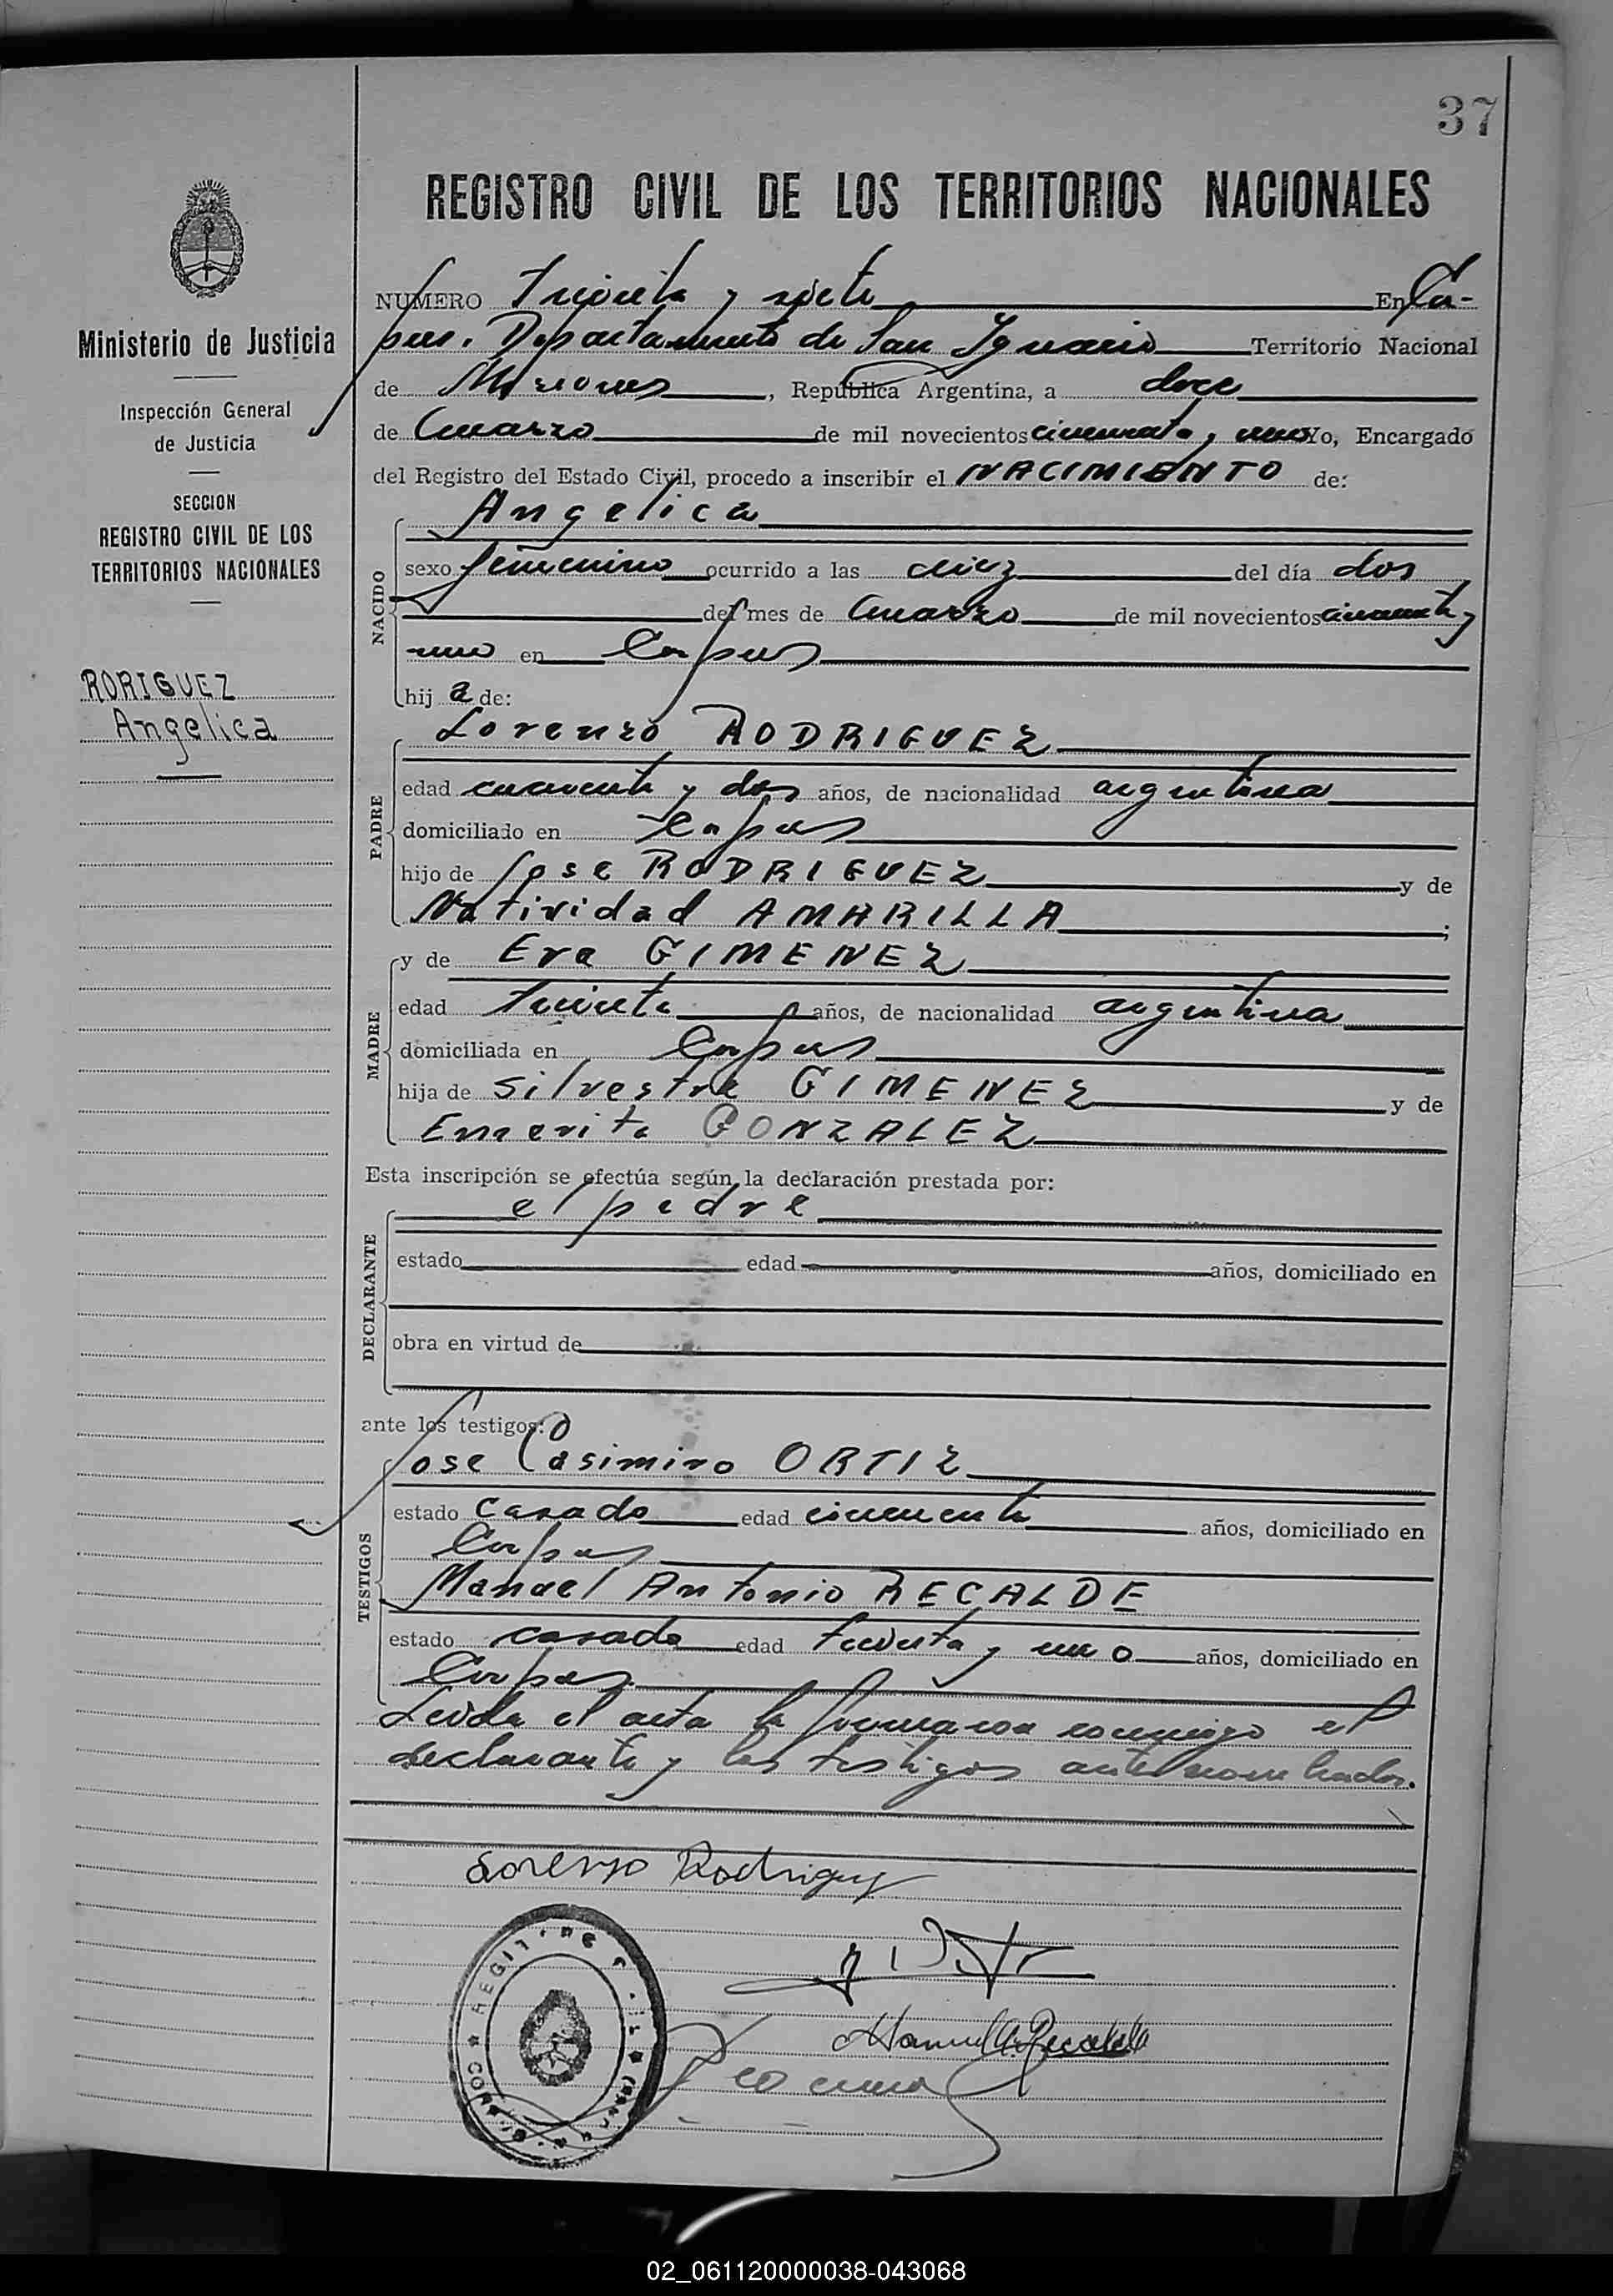 37
REGISTRO CIVIL DE LOS TERRITORIOS NACIONALES
Ministerio de Justicia
Inspección General
de Justicia
SECCION
REGISTRO CIVIL DE LOS
TERRITORIOS NACIONALES
RORIGUEZ
Angelica
NUMERO Treinta y siete En Cor-
pus. Departamento de San Ignacio Territorio Nacional
de Misiones, República Argentina, a doce
de marzo de mil novecientos cincuenta y uno Yo, Encargado
del Registro del Estado Civil, procedo a inscribir el NACIMIENTO de:
Angelica
NACIDO
sexo femenino ocurrido a las diez del día dos
del mes de marzo de mil novecientos cincuenta y
uno en Corpus
hij a de:
Lorenzo RODRIGUEZ
PADRE
edad cuarenta y dos años, de nacionalidad argentina
domiciliado en Corpus
hijo de Jose RODRIGUEZ y de
Natividad AMARILLA;
MADRE
y de Eva GIMENEZ
edad treinta años, de nacionalidad argentina
domiciliada en Corpus
hija de Silvestre GIMENEZ y de
Emerita GONZALEZ
Esta inscripción se efectúa según la declaración prestada por:
el padre
DECLARANTE
estado edad años, domiciliado en
obra en virtud de
ante los testigos:
Jose Casimiro ORTIZ
TESTIGOS
estado casado edad cincuenta años, domiciliado en
Corpus
Manuel Antonio RECALDE
estado casado edad treinta y uno años, domiciliado en
Corpus
Leida el acta la firmaron conmigo el
declarante y los testigos antenombrados.
Lorenzo Rodriguez
Manuel A. Recalde
02_061120000038-043068